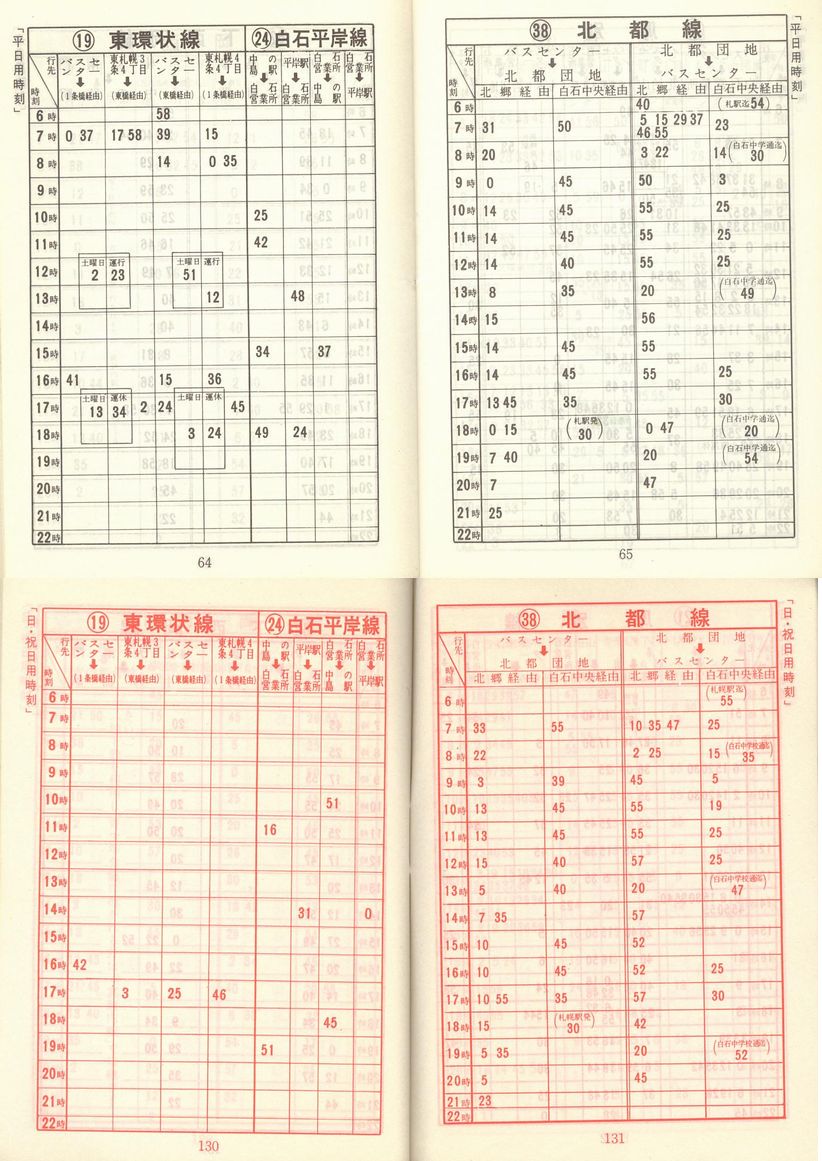 「平日用時刻」
⑲ 東環状線 ㉔白石平岸線
行先 時刻
バスセンター ➡ 東札幌3条4丁目 (1条橋経由)
東札幌3条4丁目 ➡ バスセンター (東橋経由)
バスセンター ➡ 東札幌4条 (東橋経由)
中島の駅 ➡ 白石営業所
平岸駅 ➡ 白石営業所
白石営業所 ➡ 中の島駅
白石営業所 ➡ 平岸駅
6時 58
7時 0 37 17 58 39 15
8時 14 0 35
9時
10時 25
11時 42
12時 土曜日運行 2 23 土曜日運行 51
13時 12 48
14時
15時 34 37
16時 41 15 36
17時 土曜日運休 13 34 2 24 土曜日運休 45
18時 3 24 49 24
19時
20時
21時
22時
64
「平日用時刻」
㊳ 北都線
行先 時刻
バスセンター ➡ 北都団地
北都団地 ➡ バスセンター
北郷経由 白石中央経由 北郷経由 白石中央経由
6時 40 (札駅迄54)
7時 31 50 5 15 29 37 46 55 23
8時 20 3 22 14 (白石中学通迄 30)
9時 0 45 50 3
10時 14 45 55 25
11時 14 45 55 25
12時 14 40 55 25
13時 8 35 20 (白石中学通迄 49)
14時 15 56
15時 14 45 55
16時 14 45 55 25
17時 13 45 35 30
18時 0 15 (札駅発 30) 0 47 (白石中学通迄 20)
19時 7 40 20 (白石中学通迄 54)
20時 7 47
21時 25
22時
65
「日・祝日用時刻」
⑲ 東環状線 ㉔白石平岸線
行先 時刻
6時
7時
8時
9時
10時 51
11時 16
12時
13時
14時 31 0
15時
16時 42
17時 3 25 46
18時 45
19時 51
20時
21時
22時
130
「日・祝日用時刻」
㊳ 北都線
行先 時刻
バスセンター ➡ 北都団地
北都団地 ➡ バスセンター
北郷経由 白石中央経由 北郷経由 白石中央経由
6時 (札幌駅迄 55)
7時 33 55 10 35 47 25
8時 22 2 25 15 (白石中学校通迄 35)
9時 3 39 45 5
10時 13 45 55 19
11時 13 45 55 25
12時 15 40 57 25
13時 5 40 20 (白石中学校通迄 47)
14時 7 35 57
15時 10 45 52
16時 10 45 52 25
17時 10 55 35 57 30
18時 15 (札幌駅発 30) 42
19時 5 35 20 (白石中学校通迄 52)
20時 5 45
21時 23
22時
131